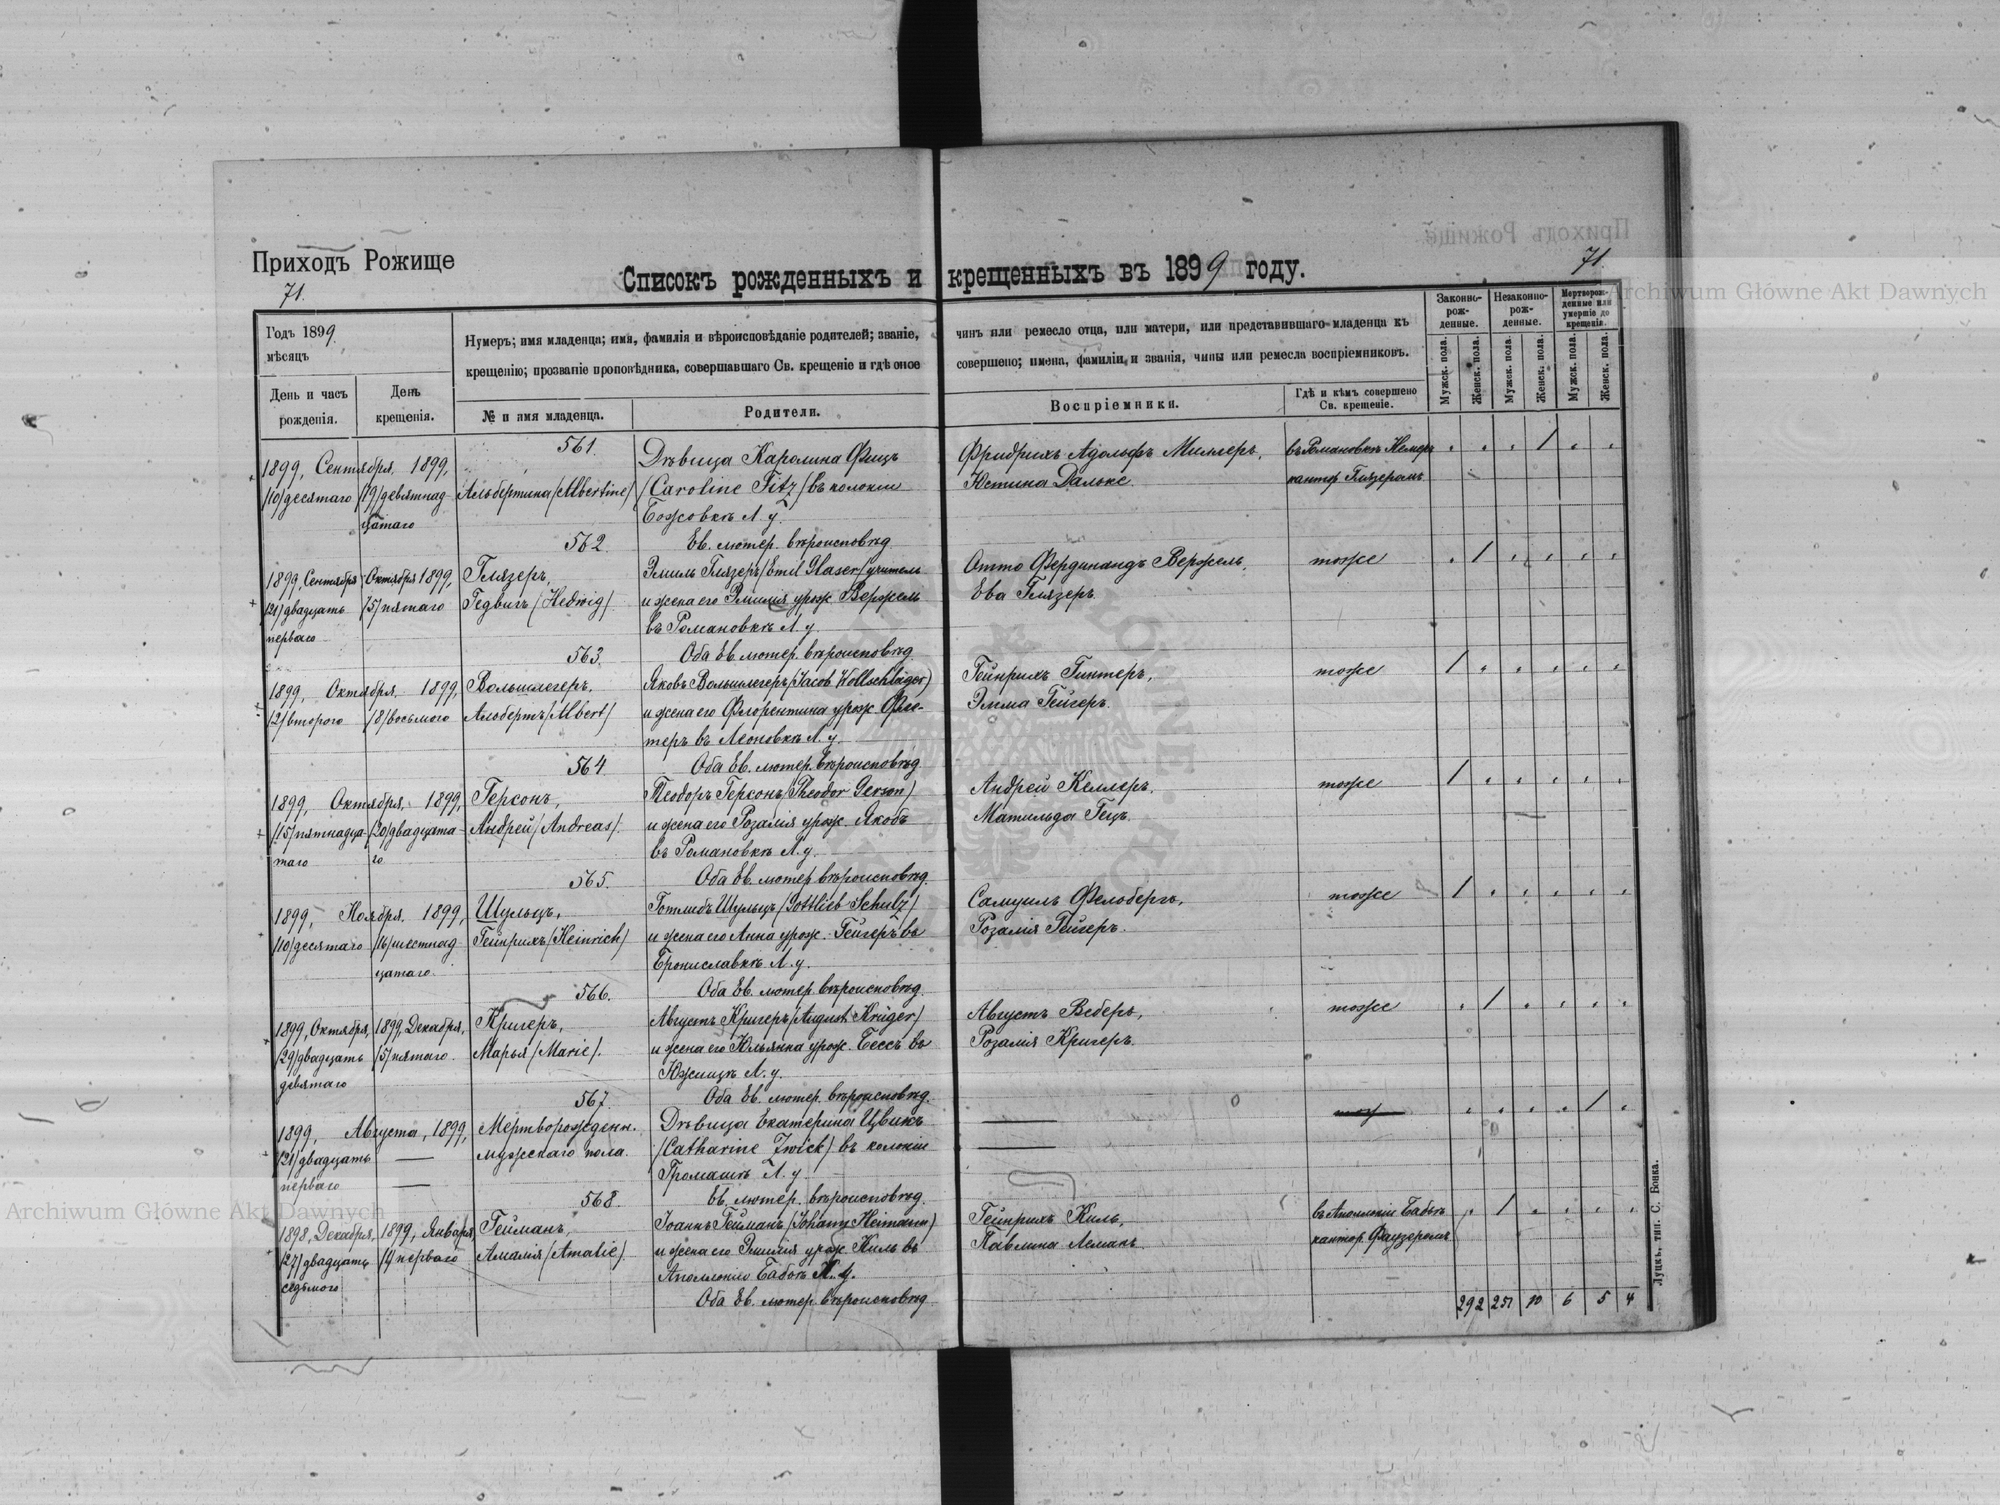 Приходъ Рожище
71.
71.
Списокъ рожденныхъ и крещенныхъ въ 1899 году.
Годъ 1899.
мѣсяцъ
День и часъ рожденія.
День крещенія.
Нумеръ; имя младенца; имя, фамилія и вѣроисповѣданіе родителей; званіе, чинъ или ремесло отца, или матери, или представившаго младенца къ
крещенію; прозваніе проповѣдника, совершавшаго Св. крещеніе и гдѣ оное совершено; имена, фамиліи и званія, чины или ремесла воспріемниковъ.
№ и имя младенца.
Родители.
Воспріемники.
Гдѣ и кѣмъ совершено Св. крещеніе.
Законно-рож-денные.
Незаконно-рож-денные.
Мертворож-денные или умершіе до крещенія.
Мужск. пола.
Женск. пола.
Мужск. пола.
Женск. пола.
Мужск. пола.
Женск. пола.
561.
1899, Сентября, 1899,
/10/десятаго /19/девятнад-
цатаго
Альбертина/Albertine/
Дѣвица Каролина Фицъ
/Caroline Fitz/ въ колоніи
Божовкѣ Л. у.
Ев. лютер. вѣроисповѣд.
Фридрихъ Адольфъ Миллеръ,
Юстина Дальке.
въ Романовкѣ Кемер
кантор. Глязеромъ
562.
1899 Сентября Октября 1899,
/21/двадцать /5/пятаго
перваго
Глязеръ,
Гедвигъ /Hedwig/
Эмиль Глязеръ/Emil Glaser/учитель
и жена его Эмилія урож. Вержель
въ Романовкѣ Л. у.
Оба Ев. лютер. вѣроисповѣд.
Отто Фердинандъ Вержель,
Ева Глязеръ.
тоже
563.
1899, Октября, 1899,
/2/второго /8/восьмого
Вольшлегеръ,
Альбертъ/Albert/
Яковъ Вольшлегеръ/Jacob Wollschläger/
и жена его Флорентина урож. Фле-
теръ въ Леоновкѣ Л. у.
Оба Ев. лютер. вѣроисповѣд.
Гейнрихъ Гинтеръ,
Эмма Гейгеръ.
тоже
564.
1899, Октября, 1899,
/15/пятнадца- /20/двадцата-
таго го
Герсонъ,
Андрей/Andreas/.
Теодоръ Герсонъ/Theodor Gerson/
и жена его Розалія урож. Якобъ
въ Романовкѣ Л. у.
Оба Ев. лютер. вѣроисповѣд.
Андрей Келлеръ,
Матильда Гецъ.
тоже
565.
1899, Ноября, 1899,
/10/десятаго /16/шестнад-
цатаго.
Шульцъ,
Гейнрихъ/Heinrich/
Готлибъ Шульцъ/Gottlieb Schulz/
и жена его Анна урож. Гейгеръ въ
Брониславкѣ Л. у.
Оба Ев. лютер. вѣроисповѣд.
Самуилъ Фельбергъ,
Розалія Гейгеръ.
тоже
566.
1899, Октября, 1899, Декабря,
/29/двадцать /5/пятаго.
девятаго
Кригеръ,
Марья/Marie/.
Августъ Кригеръ/August Krüger/
и жена его Юльянна урож. Бессъ въ
Л. у.
Оба Ев. лютер. вѣроисповѣд.
Августъ Веберъ,
Розалія Кригеръ.
тоже
567.
1899, Августа, 1899,
/21/двадцать
перваго
Мертворожденн.
мужскаго пола.
Дѣвица Екатерина Цвикъ
/Catharine Zwick/ въ колоніи
Громашъ Л. у.
Ев. лютер. вѣроисповѣд.
568.
1898, Декабря, 1899, Января,
/27/двадцать /1/перваго
седьмого
Гейманъ,
Амалія/Amalie/.
Іоаннъ Гейманъ/Johann Heimann/
и жена его Эмилія урож. Киль въ
Аполлоніи Бабокъ
Оба Ев. лютер. вѣроисповѣд.
Гейнрихъ Киль,
Павлина Леманъ.
въ Аполлоніи Бабокъ
кантор. Фаузеромъ
292 251 10 6 5 4
Луцкъ, тип. С. Бонка.
Archiwum Główne Akt Dawnych
Archiwum Główne Akt Dawnych